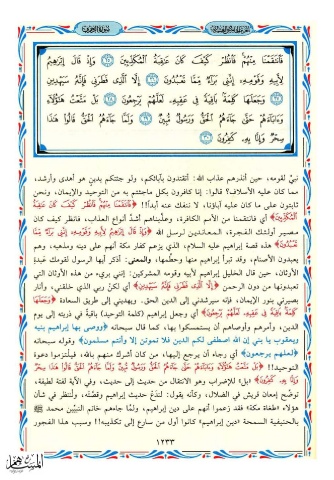 فَٱنتَقَمۡنَا مِنۡهُمۡۖ فَٱنظُرۡ كَيۡفَ كَانَ عَٰقِبَةُ ٱلۡمُكَذِّبِينَ ٢٥ وَإِذۡ قَالَ إِبۡرَٰهِيمُ
لِأَبِيهِ وَقَوۡمِهِۦٓ إِنَّنِي بَرَآءٞ مِّمَّا تَعۡبُدُونَ ٢٦ إِلَّا ٱلَّذِي فَطَرَنِي فَإِنَّهُۥ سَيَهۡدِينِ
٢٧ وَجَعَلَهَا كَلِمَةَۢ بَاقِيَةٗ فِي عَقِبِهِۦ لَعَلَّهُمۡ يَرۡجِعُونَ ٢٨ بَلۡ مَتَّعۡتُ هَٰٓؤُلَآءِ
وَءَابَآءَهُمۡ حَتَّىٰ جَآءَهُمُ ٱلۡحَقُّ وَرَسُولٞ مُّبِينٞ ٢٩ وَلَمَّا جَآءَهُمُ ٱلۡحَقُّ قَالُواْ هَٰذَا
سِحۡرٞ وَإِنَّا بِهِۦ كَٰفِرُونَ ٣٠
نبيٌّ لقومه، حين أنذرهم عذاب الله: أتقتدون بآبائكم، ولو جئتكم بدينٍ هو أهدى وأرشد،
مما كان عليه الأسلاف؟ قالوا: إنا كافرون بكل ماجئتم به من التوحيد والإيمان، ونحن
ثابتون على ما كان عليه آباؤنا، لا ننفك عنه أبداً!! ﴿فَانتَقَمْنَا مِنْهُمْ فَانظُرْ كَيْفَ كَانَ عَاقِبَةُ
الْمُكَذِّبِينَ﴾ أي فانتقمنا من الأمم الكافرة، وعذَّبناهم أشدَّ أنواع العذاب، فانظر كيف كان
مصير أولئك الفجرة، المعاندين لرسل الله ﴿وَإِذْ قَالَ إِبْرَاهِيمُ لِأَبِيهِ وَقَوْمِهِ إِنَّنِي بَرَاءٌ مِّمَّا
تَعْبُدُونَ﴾ هذه قصة إبراهيم عليه السلام، الذي يزعم كفار مكة أنهم على دينه ومذهبه، وهم
يعبدون الأصنام، وقد تبرأ إبراهيم منها وحطَّمها، والمعنى: أذكر أيها الرسول لقومك عَبَدة
الأوثان، حين قال الخليل إبراهيم لأبيه وقومه المشركين: إنني بريء من هذه الأوثان التي
تعبدونها من دون الرحمن ﴿إِلَّا الَّذِي فَطَرَنِي فَإِنَّهُ سَيَهْدِينِ﴾ أي لكن ربي الذي خلقني، وأنار
بصيرتي بنور الإيمان، فإنه سيرشدني إلى الدين الحق، ويهديني إلى طريق السعادة ﴿وَجَعَلَهَا
كَلِمَةً بَاقِيَةً فِي عَقِبِهِ لَعَلَّهُمْ يَرْجِعُونَ﴾ أي وجعل إبراهيم (كلمة التوحيد) باقية في ذريته إلى يوم
الدين، وأمرهم وأوصاهم أن يستمسكوا بها، كما قال سبحانه ﴿ووصى بها إبراهيم بنيه
ويعقوب يا بني إن الله اصطفى لكم الدين فلا تموتن إلا وأنتم مسلمون﴾ وقوله سبحانه
﴿لعلهم يرجعون﴾ أي رجاء أن يرجع إليها، من كان أشرك منهم بالله، فيلتزموا دعوة
التوحيد!!
وَإِنَّا بِهِ كَافِرُونَ﴾ ﴿بل﴾ للإضراب وهو الانتقال من حديث إلى حديث، وفي الآية لفتة لطيفة،
توضح إمعان قريش في الضلال، وكأنه يقول: لندَعْ حديث إبراهيم وقصَّته، ولننظر في شأن
هؤلاء «طغاة مكة» فقد زعموا أنهم على دين إبراهيم، ولمَّا جاءهم خاتم النبيِّين محمد ﷺ
بالحنيفية السمحة «دين إبراهيم» كانوا أول من سارع إلى تكذيبه!! وسبب هذا الفجور
١٢٣٣